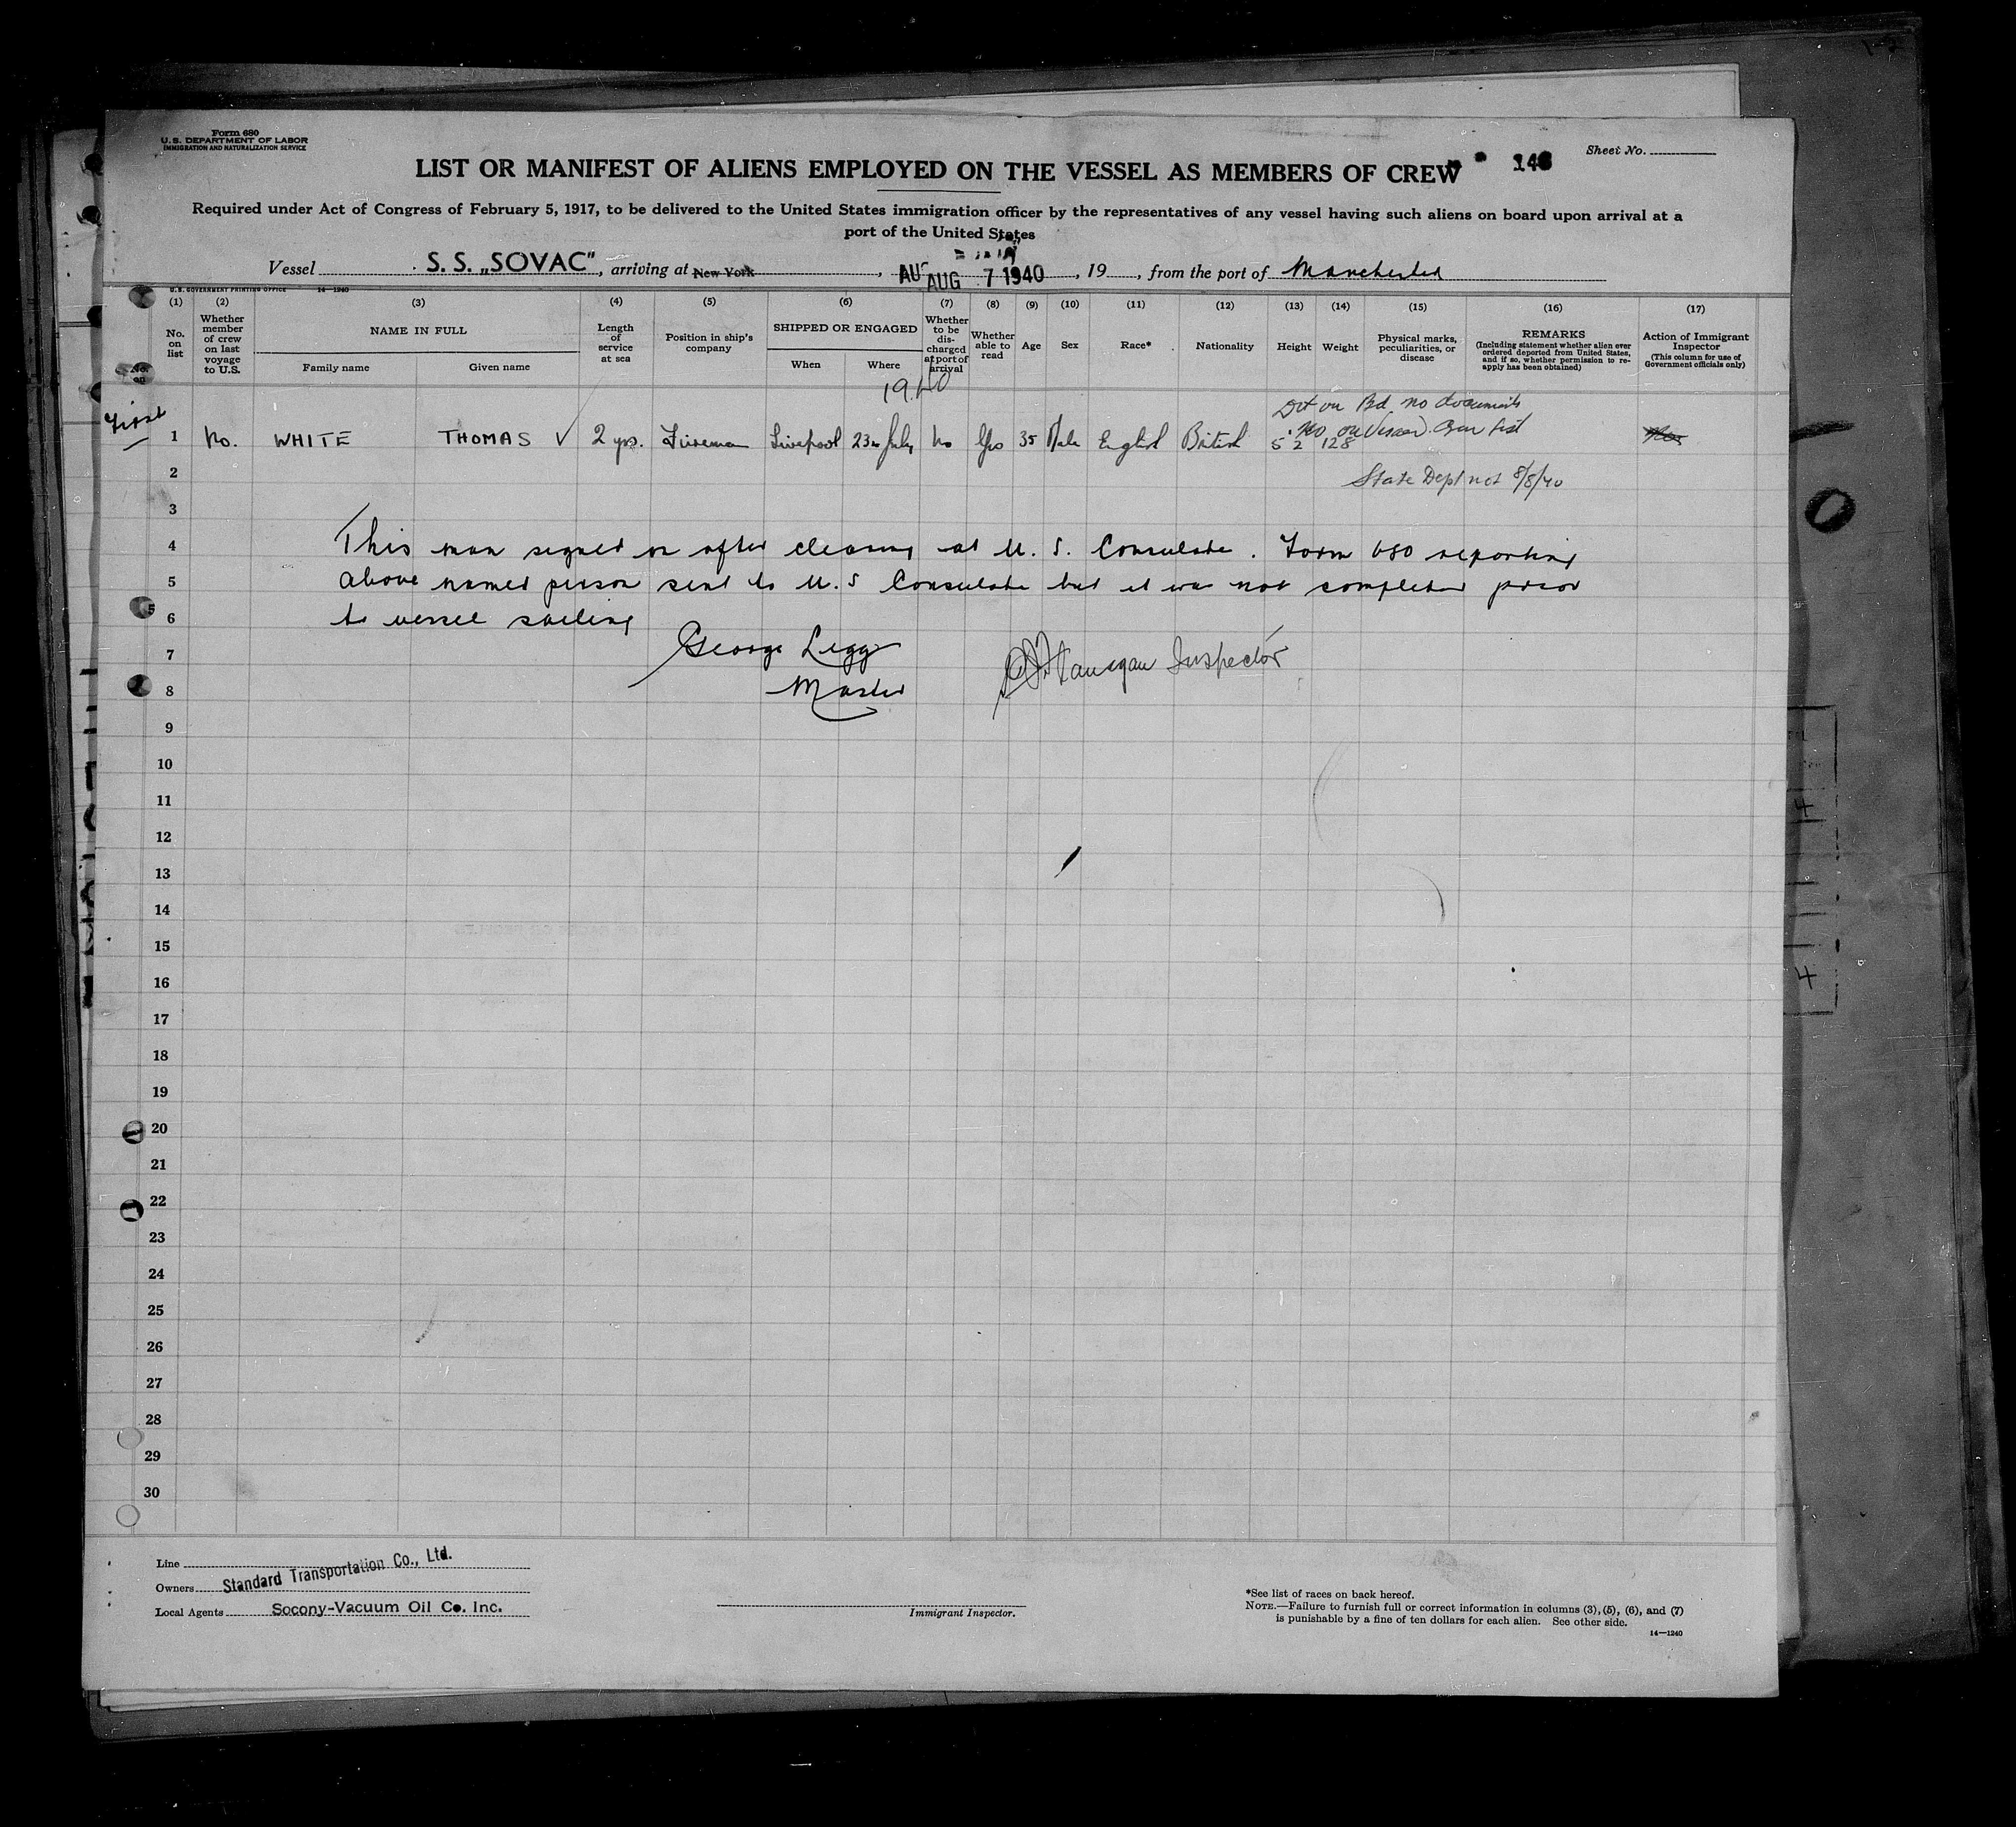 Form 680
U. S. DEPARTMENT OF LABOR
IMMIGRATION AND NATURALIZATION SERVICE
Sheet No.
LIST OR MANIFEST OF ALIENS EMPLOYED ON THE VESSEL AS MEMBERS OF CREW
Required under Act of Congress of February 5, 1917, to be delivered to the United States immigration officer by the representatives of any vessel having such aliens on board upon arrival at a
port of the United States
Vessel S. S. „SOVAC", arriving at New York, AUG 7 1940, 19, from the port of Manchester
U. S. GOVERNMENT PRINTING OFFICE 14—1240
(1) (2) (3) (4) (5) (6) (7) (8) (9) (10) (11) (12) (13) (14) (15) (16) (17)
No. on list
Whether member of crew on last voyage to U.S.
NAME IN FULL
Family name Given name
Length of service at sea
Position in ship's company
SHIPPED OR ENGAGED
When Where
Whether to be discharged at port of arrival
Whether able to read
Age
Sex
Race*
Nationality
Height
Weight
Physical marks, peculiarities, or disease
REMARKS
(Including statement whether alien ever ordered deported from United States, and if so, whether permission to reapply has been obtained)
Action of Immigrant Inspector
(This column for use of Government officials only)
1940
Det on Bd. no documents
First
no on Crew list
1 No. WHITE THOMAS V 2 yrs. Fireman Liverpool 23rd July No Yes 35 Male English British 5 2 128
2 State Dept not 8/8/40
3
4 This man signed on after clearing at U. S. Consulate. Form 680 reporting
5 above named person sent to U. S Consulate but it was not completed prior
6 to vessel sailing
7 George Legg Flanigan Inspector
8 Master
9
10
11
12
13
14
15
16
17
18
19
20
21
22
23
24
25
26
27
28
29
30
Line
Owners Standard Transportation Co., Ltd.
Local Agents Socony-Vacuum Oil Co. Inc.
Immigrant Inspector.
*See list of races on back hereof.
NOTE.—Failure to furnish full or correct information in columns (3), (5), (6), and (7)
is punishable by a fine of ten dollars for each alien. See other side.
14—1240